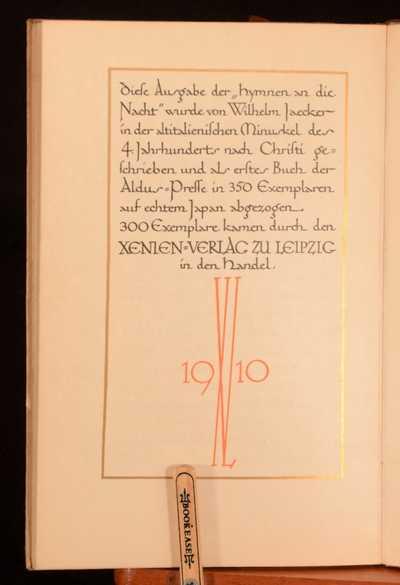 Diese Ausgabe der „Hymnen an die
Nacht" wurde von Wilhelm Jaecker
in der altitalienischen Minuskel des
4. Jahrhunderts nach Christi ge-
schrieben und als erstes Buch der
Aldus-Presse in 350 Exemplaren
auf echtem Japan abgezogen.
300 Exemplare kamen durch den
XENIEN-VERLAG ZU LEIPZIG
in den Handel.
1910
BOOKEASE